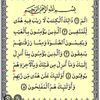 بِسْمِ ٱللَّهِ ٱلرَّحْمَٰنِ ٱلرَّحِيمِ
الٓمٓ ذَٰلِكَ ٱلْكِتَٰبُ لَا رَيْبَ فِيهِ هُدًى
لِّلْمُتَّقِينَ ٱلَّذِينَ يُؤْمِنُونَ بِٱلْغَيْبِ
وَيُقِيمُونَ ٱلصَّلَوٰةَ وَمِمَّا رَزَقْنَٰهُمْ يُنفِقُونَ
وَٱلَّذِينَ يُؤْمِنُونَ بِمَآ أُنزِلَ إِلَيْكَ وَمَآ
أُنزِلَ مِن قَبْلِكَ وَبِٱلْءَاخِرَةِ هُمْ يُوقِنُونَ
أُو۟لَٰٓئِكَ عَلَىٰ هُدًى مِّن رَّبِّهِمْ
وَأُو۟لَٰٓئِكَ هُمُ ٱلْمُفْلِحُونَ